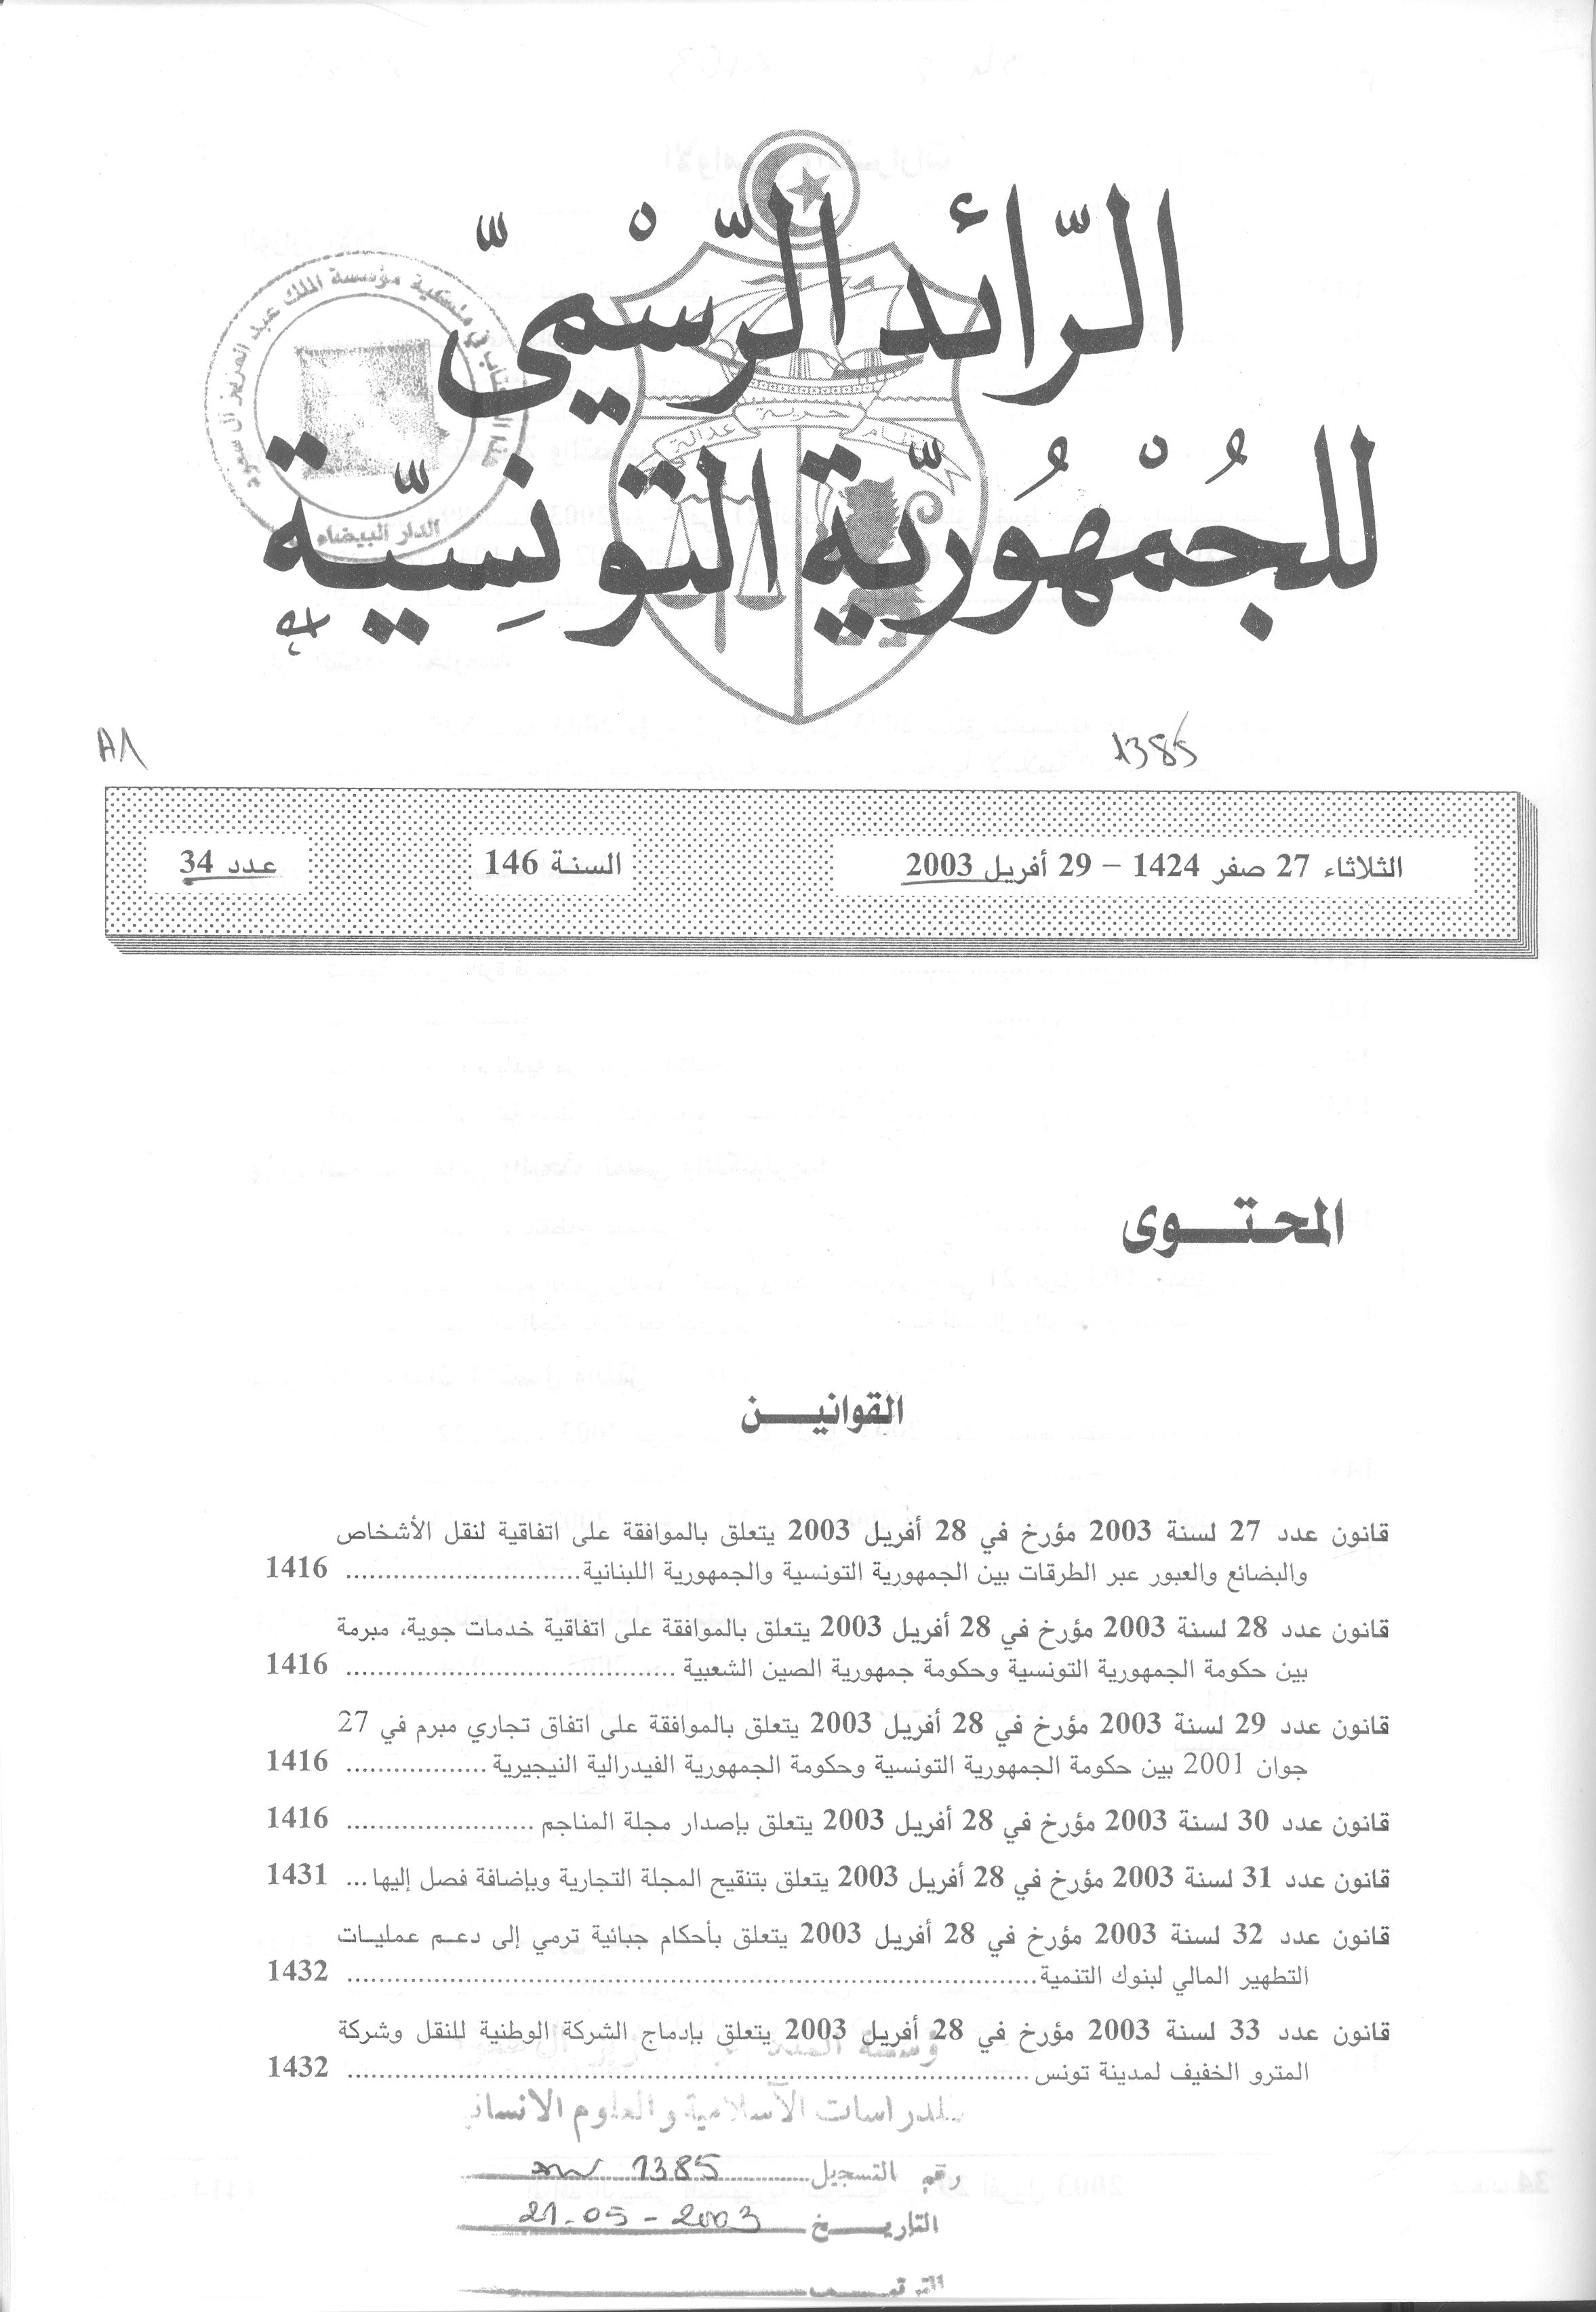 الرّائد الرّسْميّ
للجُمْهُوريّة التّونِسيّة
نظام حرية عدالة
مؤسسة الملك عبد العزيز آل سعود
الدار البيضاء
A1
1385
الثلاثاء 27 صفر 1424 – 29 أفريل 2003
السنة 146
عدد 34
المحتــوى
القوانيــن
قانون عدد 27 لسنة 2003 مؤرخ في 28 أفريل 2003 يتعلق بالموافقة على اتفاقية لنقل الأشخاص
والبضائع والعبور عبر الطرقات بين الجمهورية التونسية والجمهورية اللبنانية........................... 1416
قانون عدد 28 لسنة 2003 مؤرخ في 28 أفريل 2003 يتعلق بالموافقة على اتفاقية خدمات جوية، مبرمة
بين حكومة الجمهورية التونسية وحكومة جمهورية الصين الشعبية ........................................ 1416
قانون عدد 29 لسنة 2003 مؤرخ في 28 أفريل 2003 يتعلق بالموافقة على اتفاق تجاري مبرم في 27
جوان 2001 بين حكومة الجمهورية التونسية وحكومة الجمهورية الفيدرالية النيجيرية ................. 1416
قانون عدد 30 لسنة 2003 مؤرخ في 28 أفريل 2003 يتعلق بإصدار مجلة المناجم ....................... 1416
قانون عدد 31 لسنة 2003 مؤرخ في 28 أفريل 2003 يتعلق بتنقيح المجلة التجارية وبإضافة فصل إليها ... 1431
قانون عدد 32 لسنة 2003 مؤرخ في 28 أفريل 2003 يتعلق بأحكام جبائية ترمي إلى دعـم عمليـات
التطهير المالي لبنوك التنمية..................................................................................... 1432
قانون عدد 33 لسنة 2003 مؤرخ في 28 أفريل 2003 يتعلق بإدماج الشركة الوطنية للنقل وشركة
المترو الخفيف لمدينة تونس..................................................................................... 1432
للدراسات الاسلامية والعلوم الانساني
رقم التسجيل 1385
التاريـخ 21-05-2003